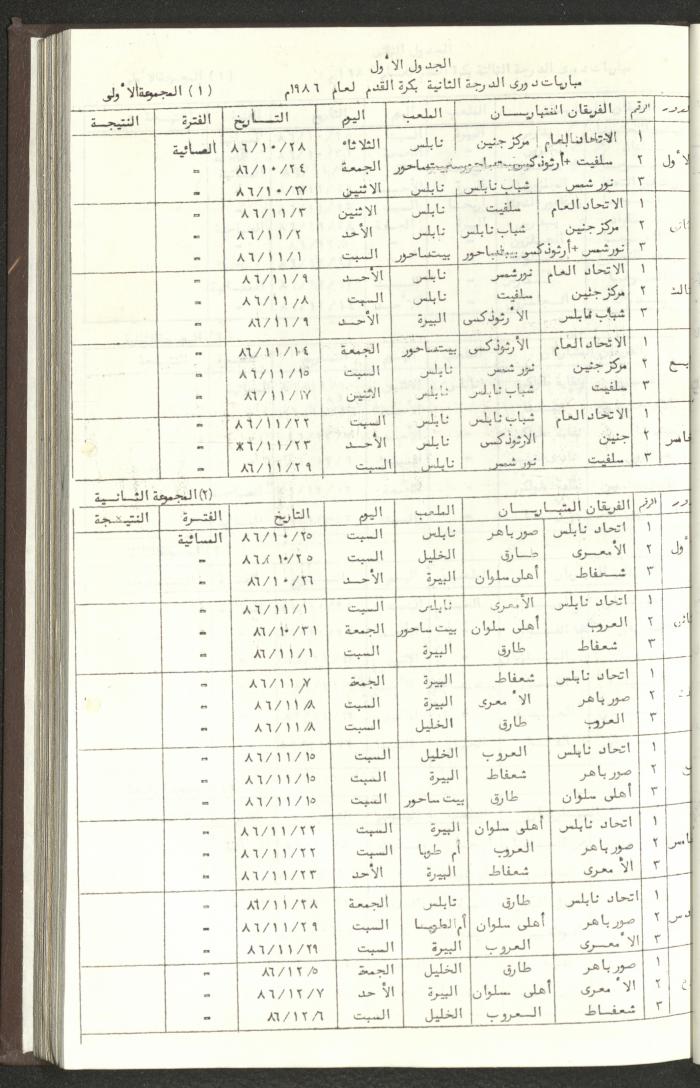 الجدول الأول
مباريات دوري الدرجة الثانية بكرة القدم لعام ١٩٨٦م (١) المجموعة الأولى
الرقم الفريقان المتباريان الملعب اليوم التاريخ الفترة النتيجة
١ الاتحاد العام مركز جنين نابلس الثلاثاء ٨٦/١٠/٢٨ المسائية
٢ سلفيت + أرثوذكسي بيت ساحور بيت ساحور الجمعة ٨٦/١٠/٢٤ =
٣ نور شمس شباب نابلس نابلس الاثنين ٨٦/١٠/٢٧ =
١ الاتحاد العام سلفيت نابلس الاثنين ٨٦/١١/٣ =
٢ مركز جنين شباب نابلس نابلس الأحد ٨٦/١١/٢ =
٣ نور شمس + أرثوذكسي بيت ساحور بيت ساحور السبت ٨٦/١١/١ =
١ الاتحاد العام نور شمس نابلس الأحد ٨٦/١١/٩ =
٢ مركز جنين سلفيت نابلس السبت ٨٦/١١/٨ =
٣ شباب نابلس الأرثوذكسي البيرة الأحد ٨٦/١١/٩ =
١ الاتحاد العام الأرثوذكسي بيت ساحور الجمعة ٨٦/١١/١٤ =
٢ مركز جنين نور شمس نابلس السبت ٨٦/١١/١٥ =
٣ سلفيت شباب نابلس نابلس الاثنين ٨٦/١١/١٧ =
١ الاتحاد العام شباب نابلس نابلس السبت ٨٦/١١/٢٢ =
٢ جنين الارثوذكسي نابلس الأحد ٨٦/١١/٢٣ =
٣ سلفيت نور شمس نابلس السبت ٨٦/١١/٢٩ =
(٢) المجموعة الثانية
الرقم الفريقان المتباريان الملعب اليوم التاريخ الفترة النتيجة
١ اتحاد نابلس صور باهر نابلس السبت ٨٦/١٠/٢٥ المسائية
٢ الأمعري طارق الخليل السبت ٨٦/١٠/٢٥ =
٣ شعفاط أهلي سلوان البيرة الأحد ٨٦/١٠/٢٦ =
١ اتحاد نابلس الأمعري نابلس السبت ٨٦/١١/١ =
٢ العروب أهلي سلوان بيت ساحور الجمعة ٨٦/١٠/٣١ =
٣ شعفاط طارق البيرة السبت ٨٦/١١/١ =
١ اتحاد نابلس شعفاط البيرة الجمعة ٨٦/١١/٧ =
٢ صور باهر الأمعري البيرة السبت ٨٦/١١/٨ =
٣ العروب طارق الخليل السبت ٨٦/١١/٨ =
١ اتحاد نابلس العروب الخليل السبت ٨٦/١١/١٥ =
٢ صور باهر شعفاط البيرة السبت ٨٦/١١/١٥ =
٣ أهلي سلوان طارق بيت ساحور السبت ٨٦/١١/١٥ =
١ اتحاد نابلس أهلي سلوان البيرة السبت ٨٦/١١/٢٢ =
٢ صور باهر العروب أم طوبا السبت ٨٦/١١/٢٢ =
٣ الأمعري شعفاط البيرة الأحد ٨٦/١١/٢٣ =
١ اتحاد نابلس طارق نابلس الجمعة ٨٦/١١/٢٨ =
٢ صور باهر أهلي سلوان السبت ٨٦/١١/٢٩ =
٣ الأمعري العروب البيرة السبت ٨٦/١١/٢٩ =
١ صور باهر طارق الخليل الجمعة ٨٦/١٢/٥ =
٢ الأمعري أهلي سلوان البيرة الأحد ٨٦/١٢/٧ =
٣ شعفاط العروب الخليل السبت ٨٦/١٢/٦ =